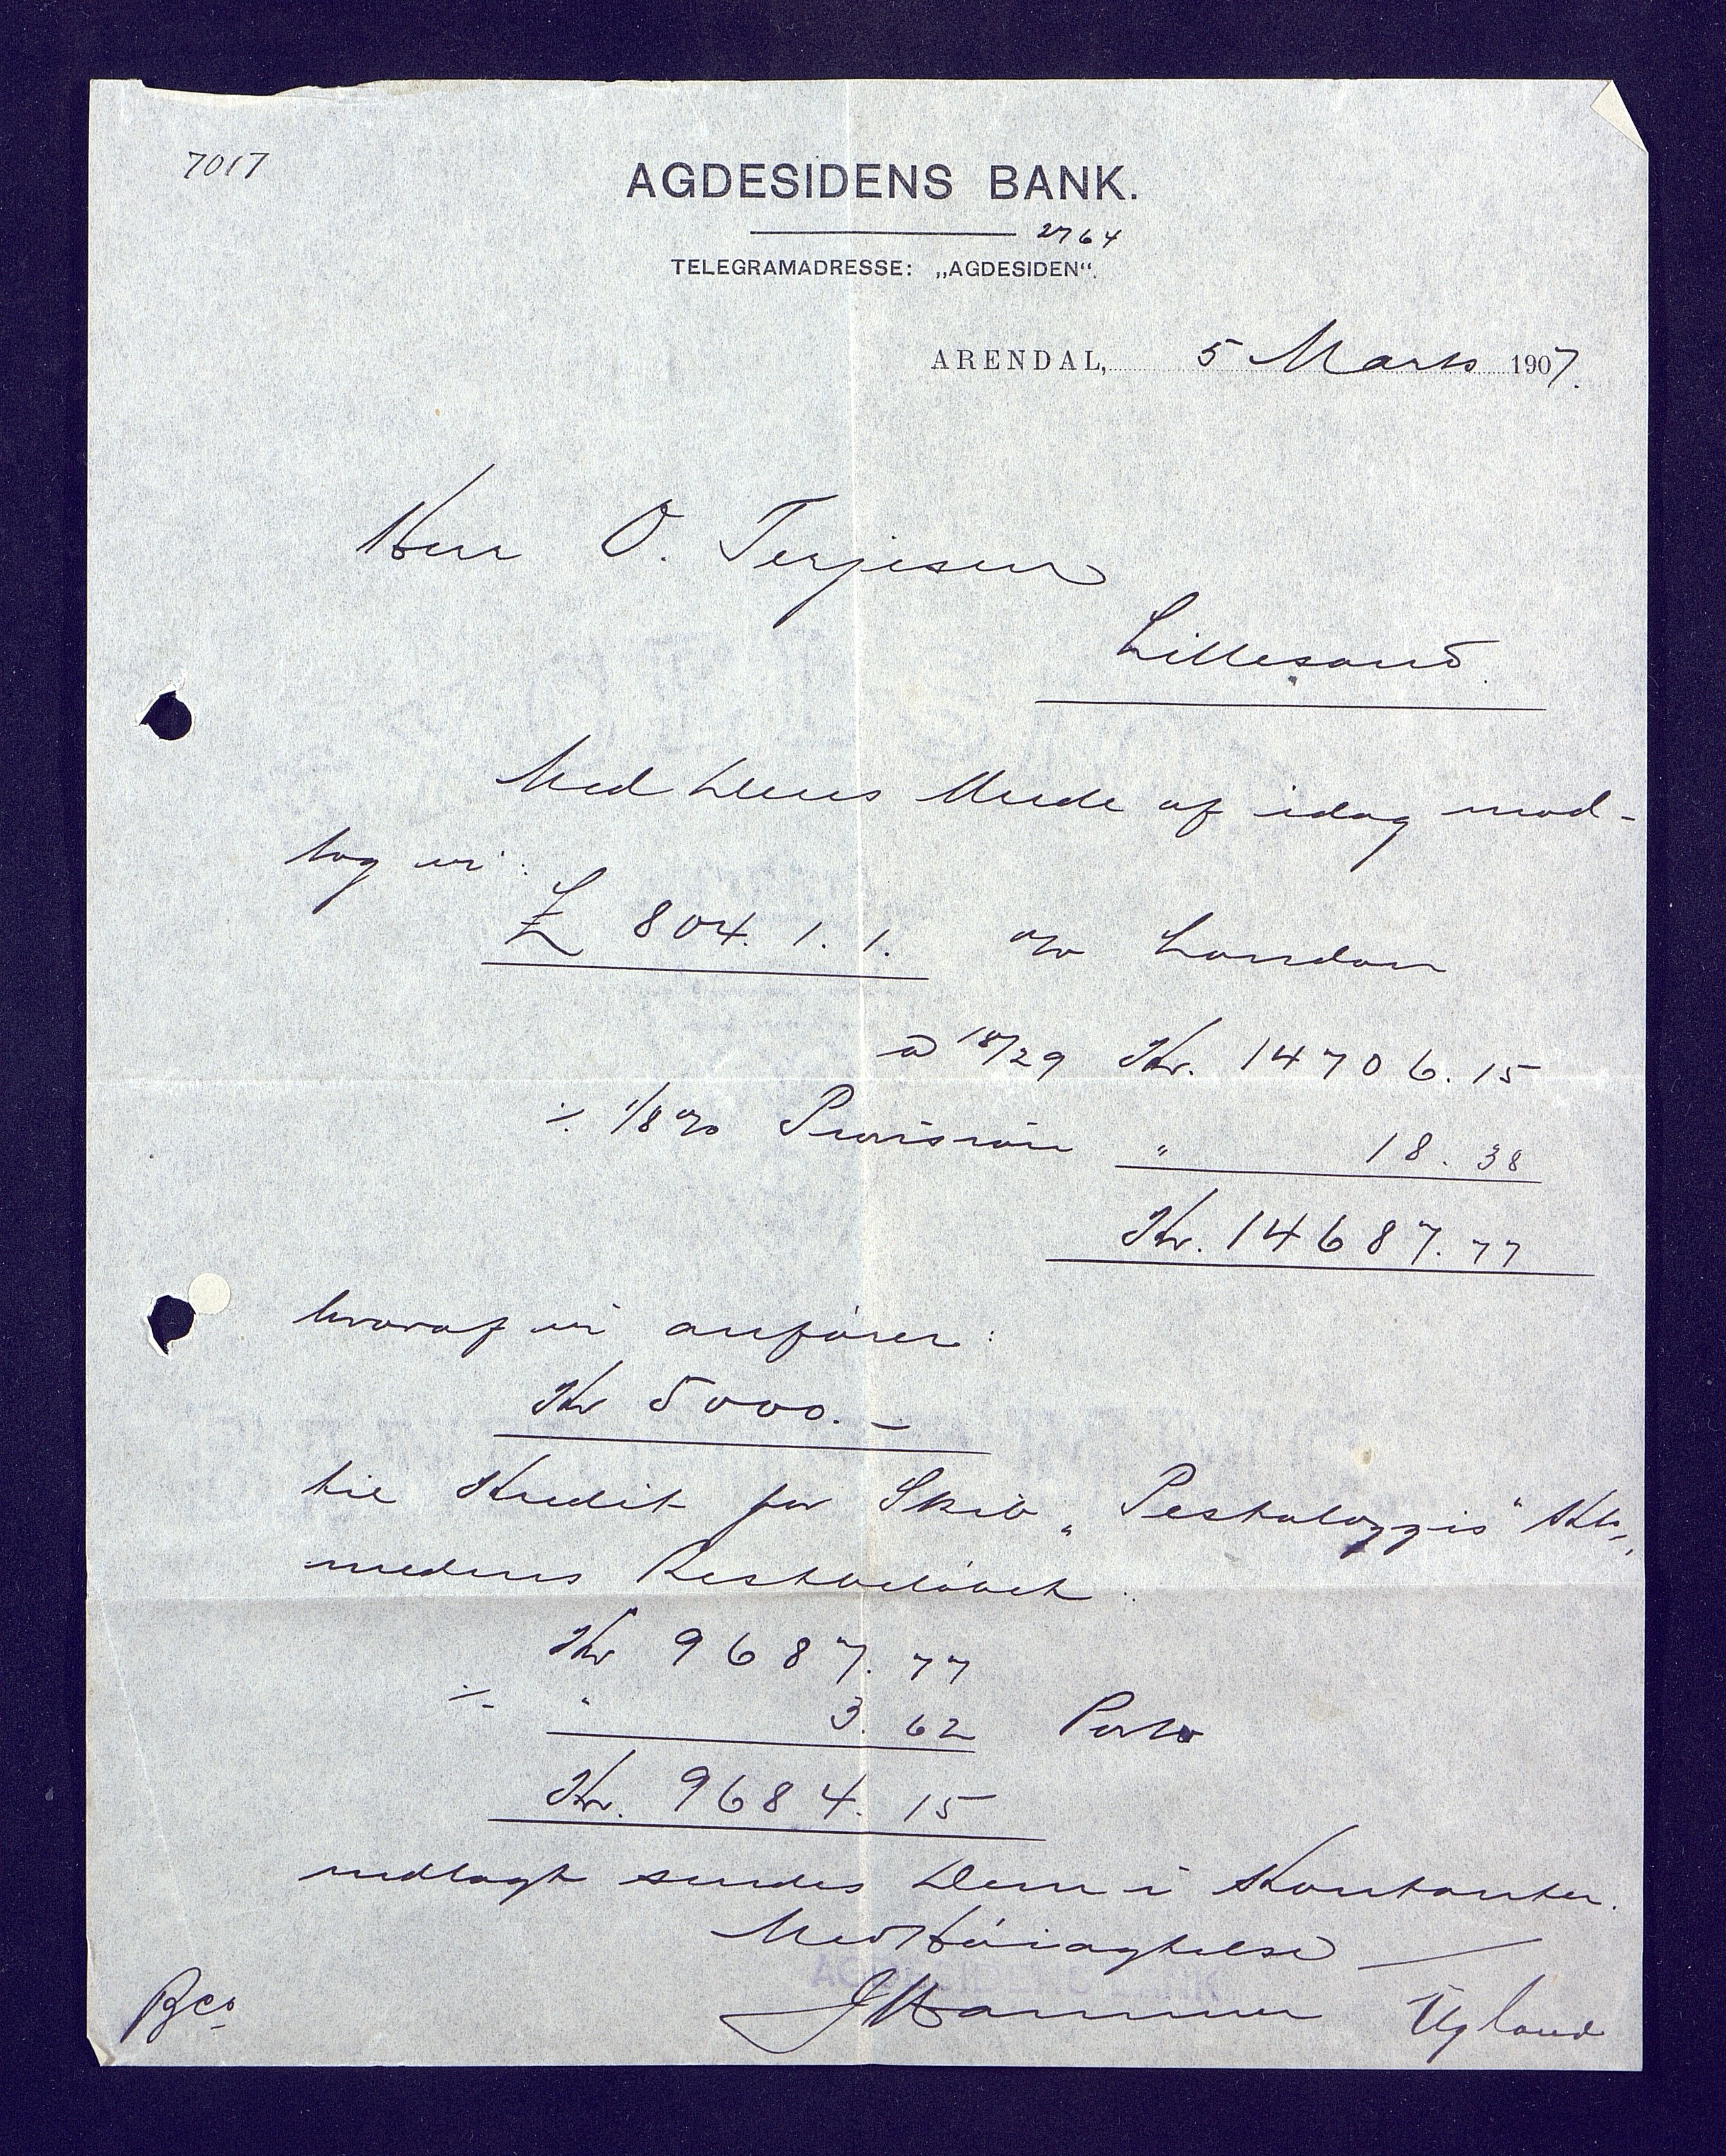 7017
AGDESIDENS BANK.
2764
TELEGRAMADRESSE: „AGDESIDEN“.
ARENDAL, 5 Marts 1907.
Herr O. Terjesen
Lillesand.
Med Deres Ærede af idag mod-
tog vi:
£ 804. 1. 1. o/o London
à 18/29 Kr. 14706.15
÷ 1/8 % Provision " 18.38
Kr. 14687.77
hvoraf vi anfører:
Kr 5000.-
til Kredit for Skib „Pestalozzis“ Kto,
medens Restbeløbet:
Kr 9687.77
÷ " 3.62 Porto
Kr. 9684.15
indlagt sendes Dem i Kontanter.
Med Høiagtelse
AGDESIDENS BANK
Ugland